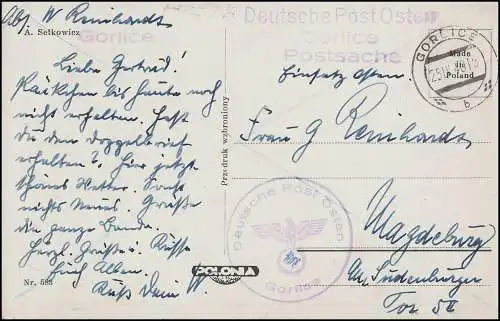 Abs. W Reinhards
A. Setkowicz
Gorlice
Liebe Gertrud!
Päckchen bis heute noch
nicht erhalten. Hast
du den Doppelbrief
erhalten? Hier jetzt
schönes Wetter. Sonst
nichts Neues. Grüße
die ganze Bande.
Herzl. Grüße u. Küsse
Euch Allen.
Kuß Dein W.
Nr. 588
Przedruk wzbroniony
POLONIA
Deutsche Post Osten
Gorlice
Postsache
GORLICE
b
Made
in
Poland
Einsatz Osten.
Frau G Reinhards
Magdeburg
Am Sudenburger
Tor 5
Deutsche Post Osten
Gorlice